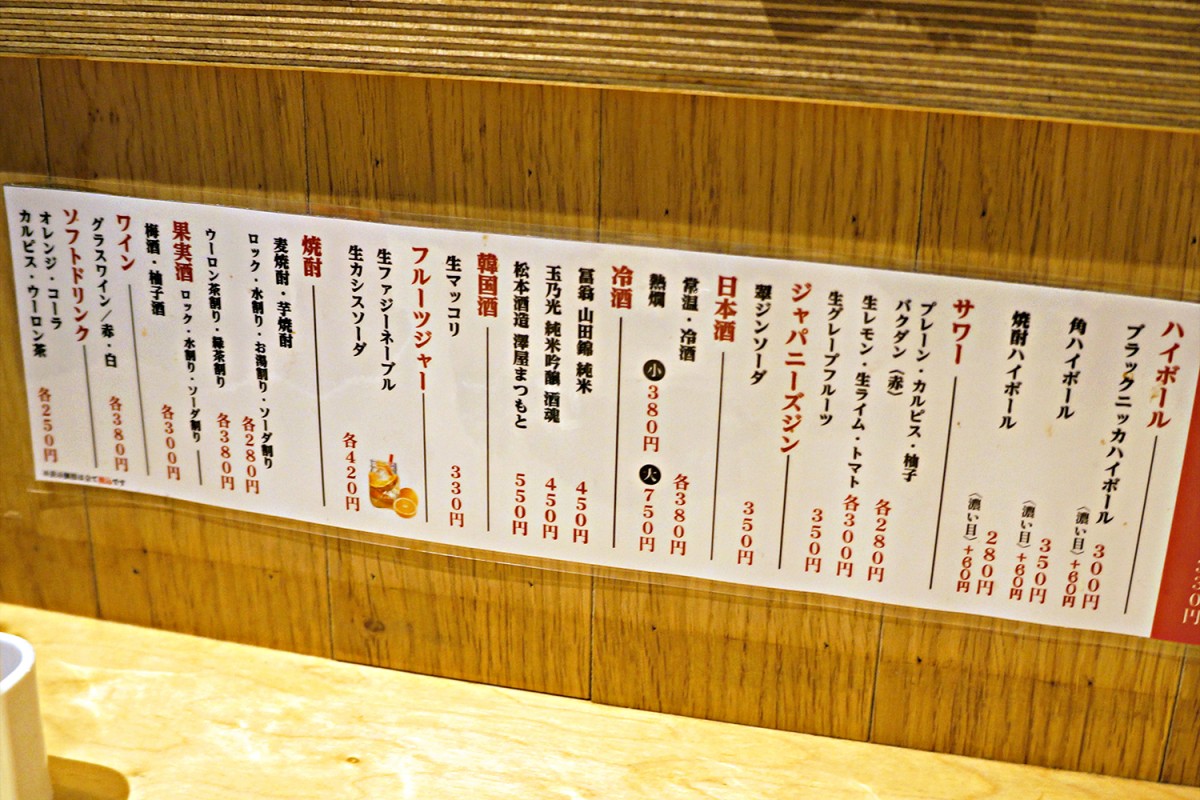 ハイボール
ブラックニッカハイボール 300円
〈濃い目〉+60円
角ハイボール 350円
〈濃い目〉+60円
焼酎ハイボール 280円
〈濃い目〉+60円
サワー
プレーン・カルピス・柚子
バクダン〈赤〉 各280円
生レモン・生ライム・トマト 各300円
生グレープフルーツ 350円
ジャパニーズジン
翠ジンソーダ 350円
日本酒
常温・冷酒 各380円
熱燗 小 380円 大 750円
冷酒
冨翁 山田錦 純米 450円
玉乃光 純米吟醸 酒魂 450円
松本酒造 澤屋まつもと 550円
韓国酒
生マッコリ 330円
フルーツジャー
生ファジーネーブル
生カシスソーダ 各420円
焼酎
麦焼酎・芋焼酎
ロック・水割り・お湯割り・ソーダ割り 各280円
ウーロン茶割り・緑茶割り 各380円
果実酒 ロック・水割り・ソーダ割り
梅酒・柚子酒 各300円
ワイン
グラスワイン/赤・白 各380円
ソフトドリンク
オレンジ・コーラ
カルピス・ウーロン茶 各250円